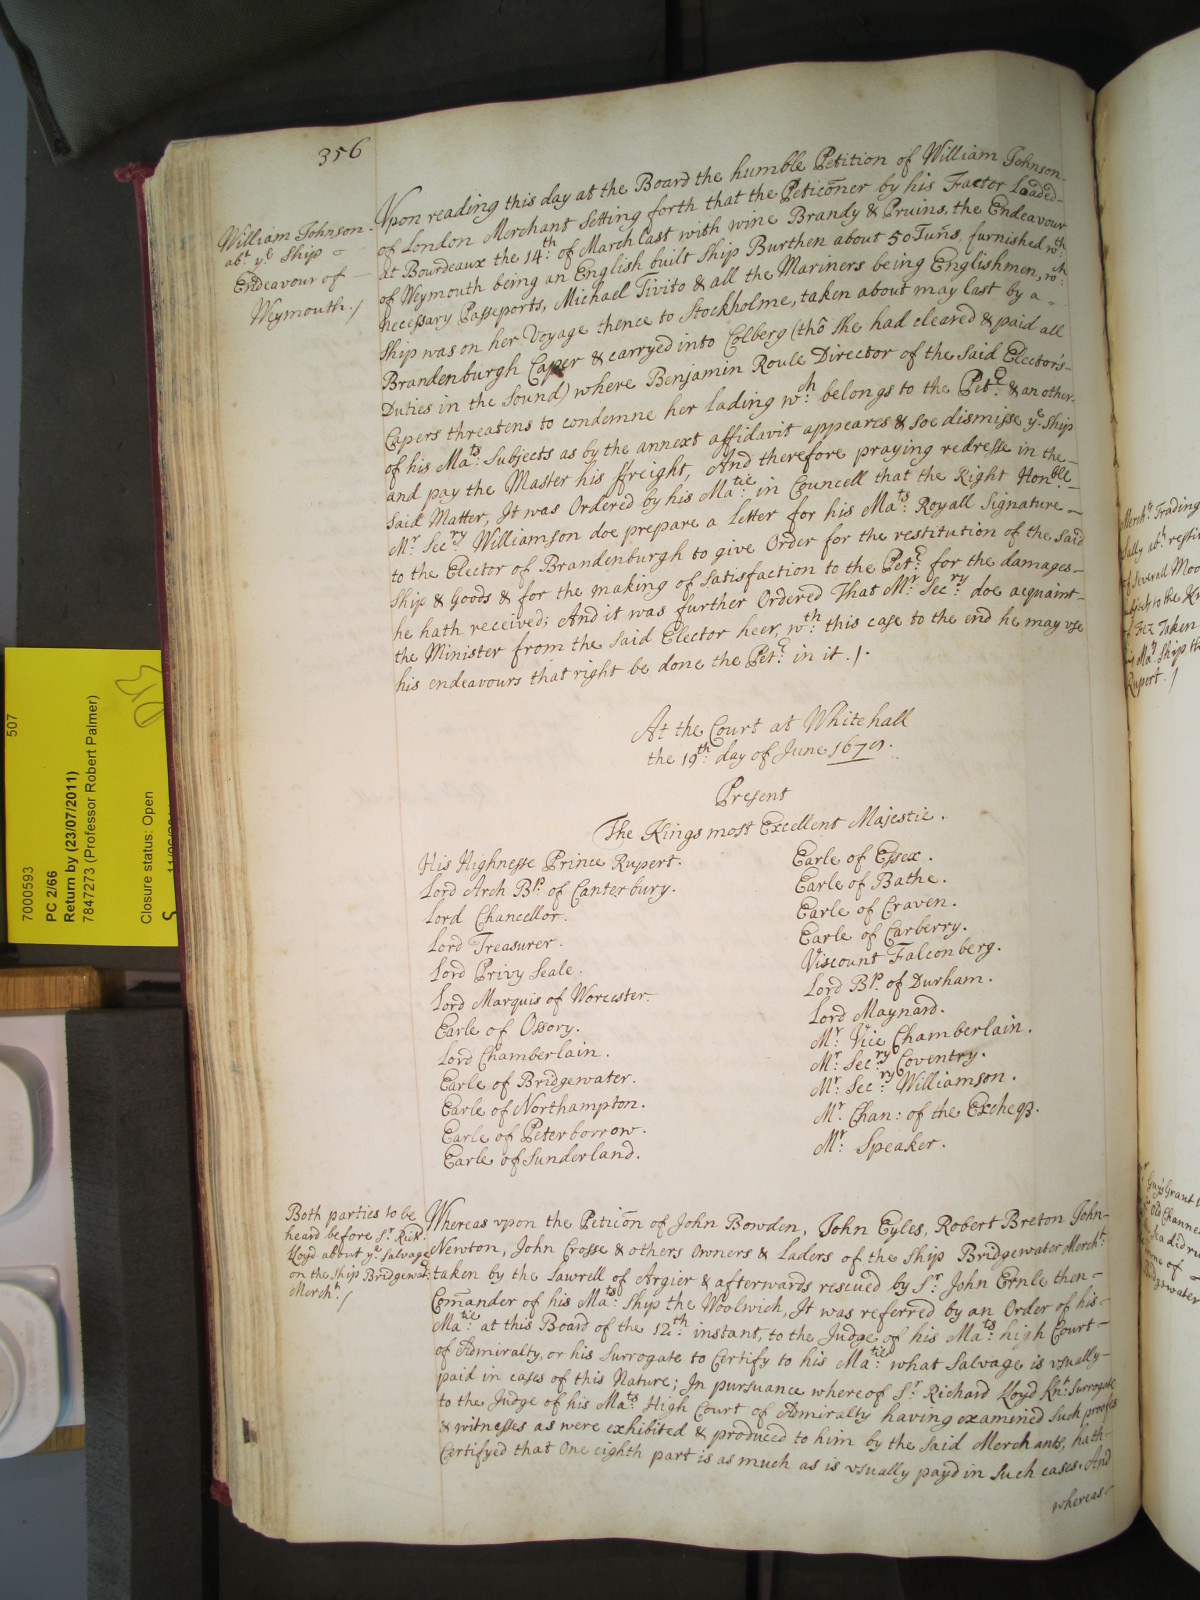 356
William Johnson
abt. ye Ship
Endeavour of
Weymouth./
Vpon reading this day at the Board the humble Petition of William Johnson
of London Merchant Setting forth that the Peticõner by his Factor Loaded
at Bourdeaux the 14th: of March last with wine Brandy & Pruins, the Endeavour
of Weymouth being an English built Ship Burthen about 50 Tuñs, furnished wth:
necessary Passeports, Michael Tivito & all the Mariners being Englishmen, wch:
Ship was on her Voyage thence to Stockholme, taken about may last by a
Brandenburgh Caper & carryed into Colberg (thõ She had cleared & paid all
Duties in the Sound) where Benjamin Roule Director of the said Elector's
Capers threatens to condemne her lading wch: belongs to the Petr: & another
of his Mats: Subjects as by the annext affidavit appeares & soe dismisse ye Ship
and pay the Master his ffreight, And therefore praying redresse in the
said Matter, It was Ordered by his Matie: in Councell that the Right Honble
Mr: Secry: Williamson doe prepare a Letter for his Mats: Royall Signature
to the Elector of Brandenburgh to give Order for the restitution of the said
Ship & Goods & for the making of Satisfaction to the Petr: for the damages
he hath received; And it was further Ordered That Mr: Secry: doe acquaint
the Minister from the said Elector heer, wth: this case to the end he may vse
his endeavours that right be done the Petr: in it ./.
At the Court at Whitehall
the 19th: day of June
Present
The Kings most Excellent Majestie.
His Highnesse Prince Rupert.
Lord Arch Bp. of Canterbury.
Lord Chancellor.
Lord Treasurer.
Lord Privy Seale.
Lord Marquis of Worcester.
Earle of Ossory.
Lord Chamberlain.
Earle of Bridgewater.
Earle of Northampton.
Earle of Peterborrow.
Earle of Sunderland.
Earle of Essex.
Earle of Bathe.
Earle of Craven.
Earle of Carberry.
Viscount Falconberg.
Lord Bp. of Durham.
Lord Maynard.
Mr: Vice Chamberlain.
Mr: Secry: Coventry.
Mr: Secry: Williamson.
Mr: Chan: of the Excheqr.
Mr: Speaker.
Both parties to be
heard before Sr. Rich:
Lloyd about ye Salvage
on the Ship Bridgewatr:
Mercht./
Whereas vpon the Peticõn of John Bowden, John Eyles, Robert Breton John
Newton, John Crosse & others Owners & Laders of the Ship Bridgewater Mercht:
taken by the Lawrell of Argier & afterwards rescued by Sr. John Ernle then
Com̃ander of his Mats: Ship the Woolwich, It was referred by an Order of his
Matie at this Board of the 12th: instant, to the Judge of his Mats: high Court
of Admiralty, or his Surrogate to Certify to his Matie: what Salvage is vsually
paid in cases of this Nature; In pursuance whereof Sr. Richard Lloyd Knt: Surrogate
to the Judge of his Mats: High Court of Admiralty having examined Such proofes
& witnesses as were exhibited & produced to him by the said Merchants, hath
Certifyed that One eighth part is as much as is vsually payd in Such cases. And
whereas
Mercht. Trading
of Severall Moo
Taken
Mats Ship the
Rupert./
507
7000593
PC 2/66
Return by (23/07/2011)
7847273 (Professor Robert Palmer)
Closure status: Open